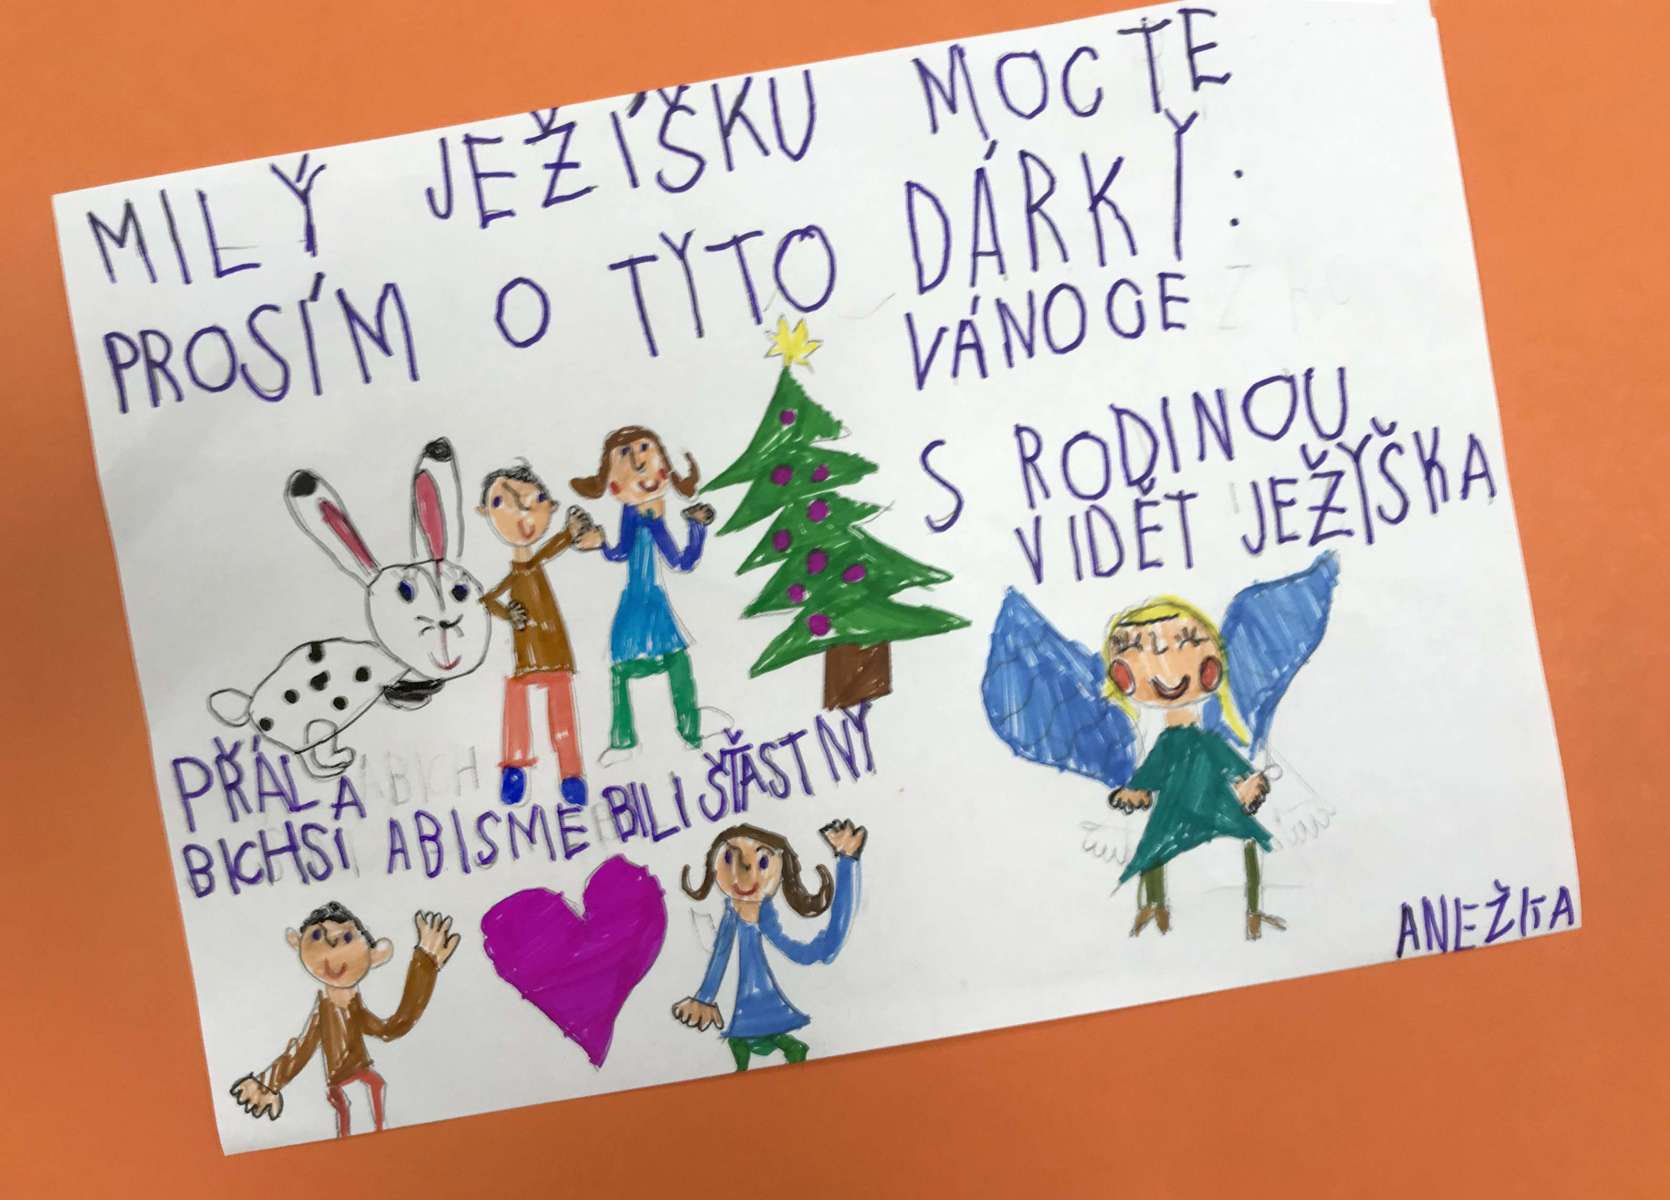 MILÝ JEŽÍŠKU MOC TE
PROSÍM O TYTO DÁRKY:
VÁNOCE
S RODINOU
VIDĚT JEŽYŠKA
PŘÁLA
BICHSI ABISME BILI ŠŤASTNY
ANEŽKA